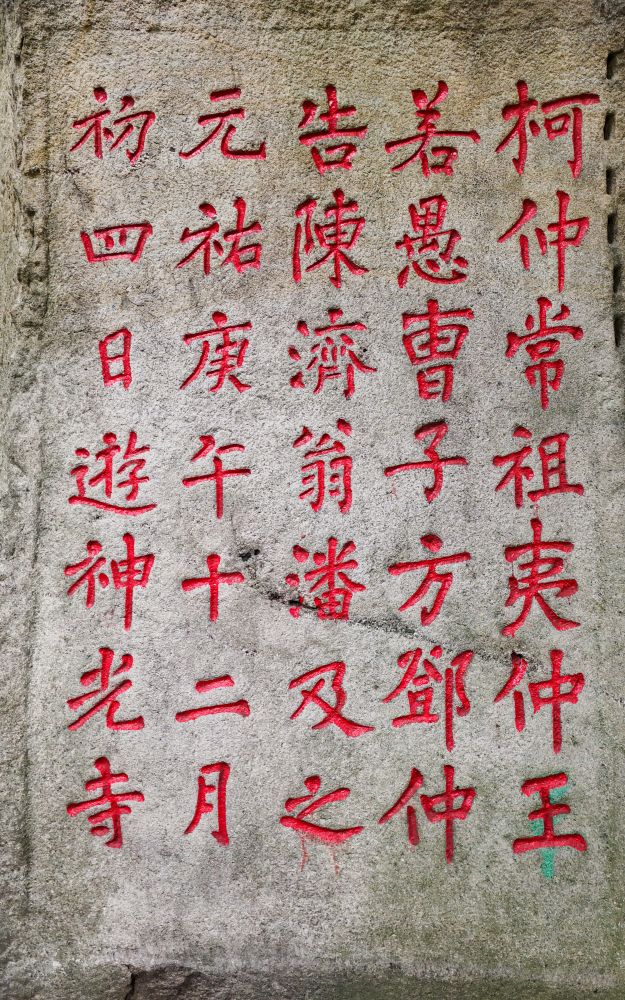 柯仲常祖夷仲王
若愚曹子方鄧仲
告陳濟翁潘及之
元祐庚午十二月
初四日遊神光寺